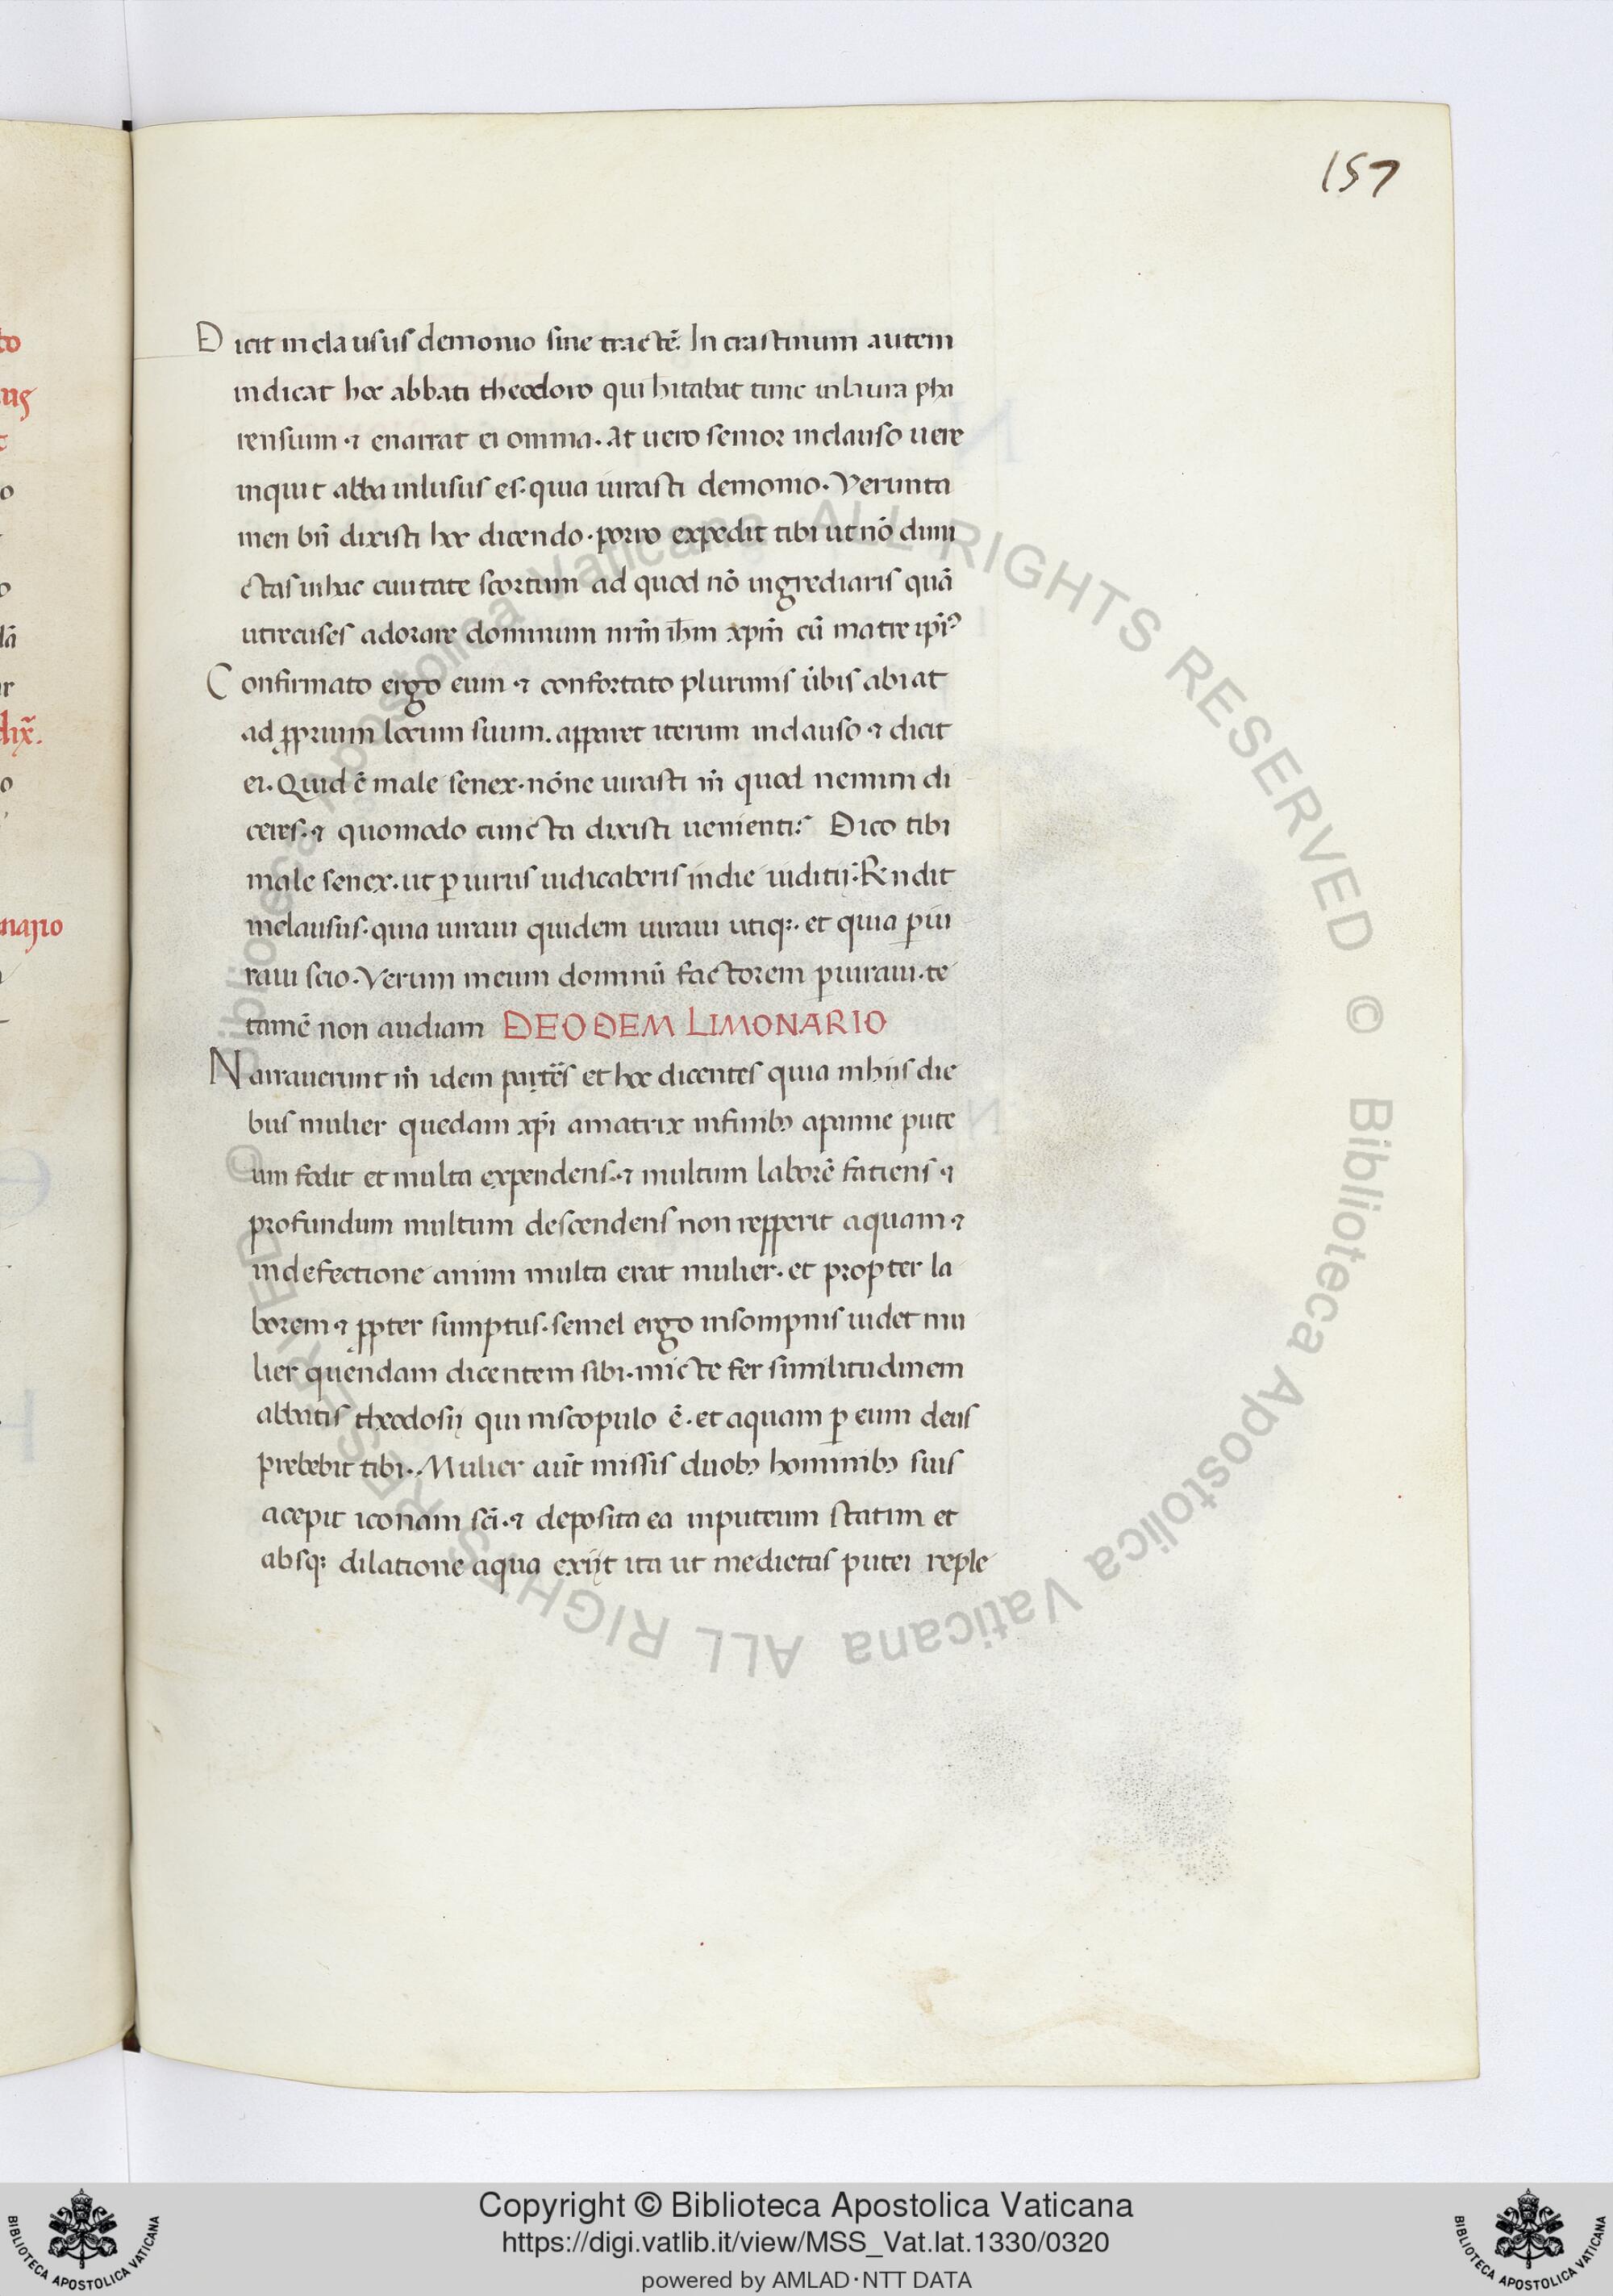 157
Dicit inclausus demonio sine tractē. In crastinum autem
indicat hoc abbati theodoro qui h̄itabat tunc inlaura pha
rensium ⁊ enarrat ei omnia. At uero senior inclauso uere
inquit abba inlusus es. quia iurasti demonio. Verunta
men bn̄ dixisti hoc dicendo. porro expedit tibi ut nō dimi
ctas inhac ciuitate scortum ad quod nō ingrediaris quā
utrecuses adorare dominum nr̄m ih̄m xp̄m cū matre ip̄i?
Confirmato ergo eum ⁊ confortato plurimis ūbis abiat
ad ꝓprium locum suum. apparet iterum inclauso ⁊ dicit
ei. Quid ē male senex. nōne iurasti m̄ quod nemini di
ceres. ⁊ quomodo cuncta dixisti uenienti? Dico tibi
male senex. ut ꝑiurus iudicaberis indie iuditij: Rn̄dit
inclausus. quia iuraui quidem iuraui utiqꝫ. et quia ꝑiu
raui scio. Verum meum dominū factorem piuraui. te
tamē non audiam DEODEM LIMONARIO
Narrauerunt m̄ idem partēs et hoc dicentes quia inhijs die
bus mulier quedam xp̄i amatrix infinibꝫ apamie pute
um fodit et multa expendens. ⁊ multum laborē fatiens ⁊
profundum multum descendens non repperit aquam ⁊
indefectione animi multa erat mulier. et propter la
borem ⁊ ꝓpter sumptus. semel ergo insompnis uidet mu
lier quendam dicentem sibi. micte fer similitudinem
abbatis theodosij qui inscopulo ē. et aquam ꝑ eum deus
prebebit tibi. Mulier aūt missis duobꝫ hominibꝫ suis
acepit iconam sc̄i. ⁊ deposita ea inputeum statim et
absqꝫ dilatione aqua exijt ita ut medietas putei reple
Copyright © Biblioteca Apostolica Vaticana
https://digi.vatlib.it/view/MSS_Vat.lat.1330/0320
powered by AMLAD·NTT DATA